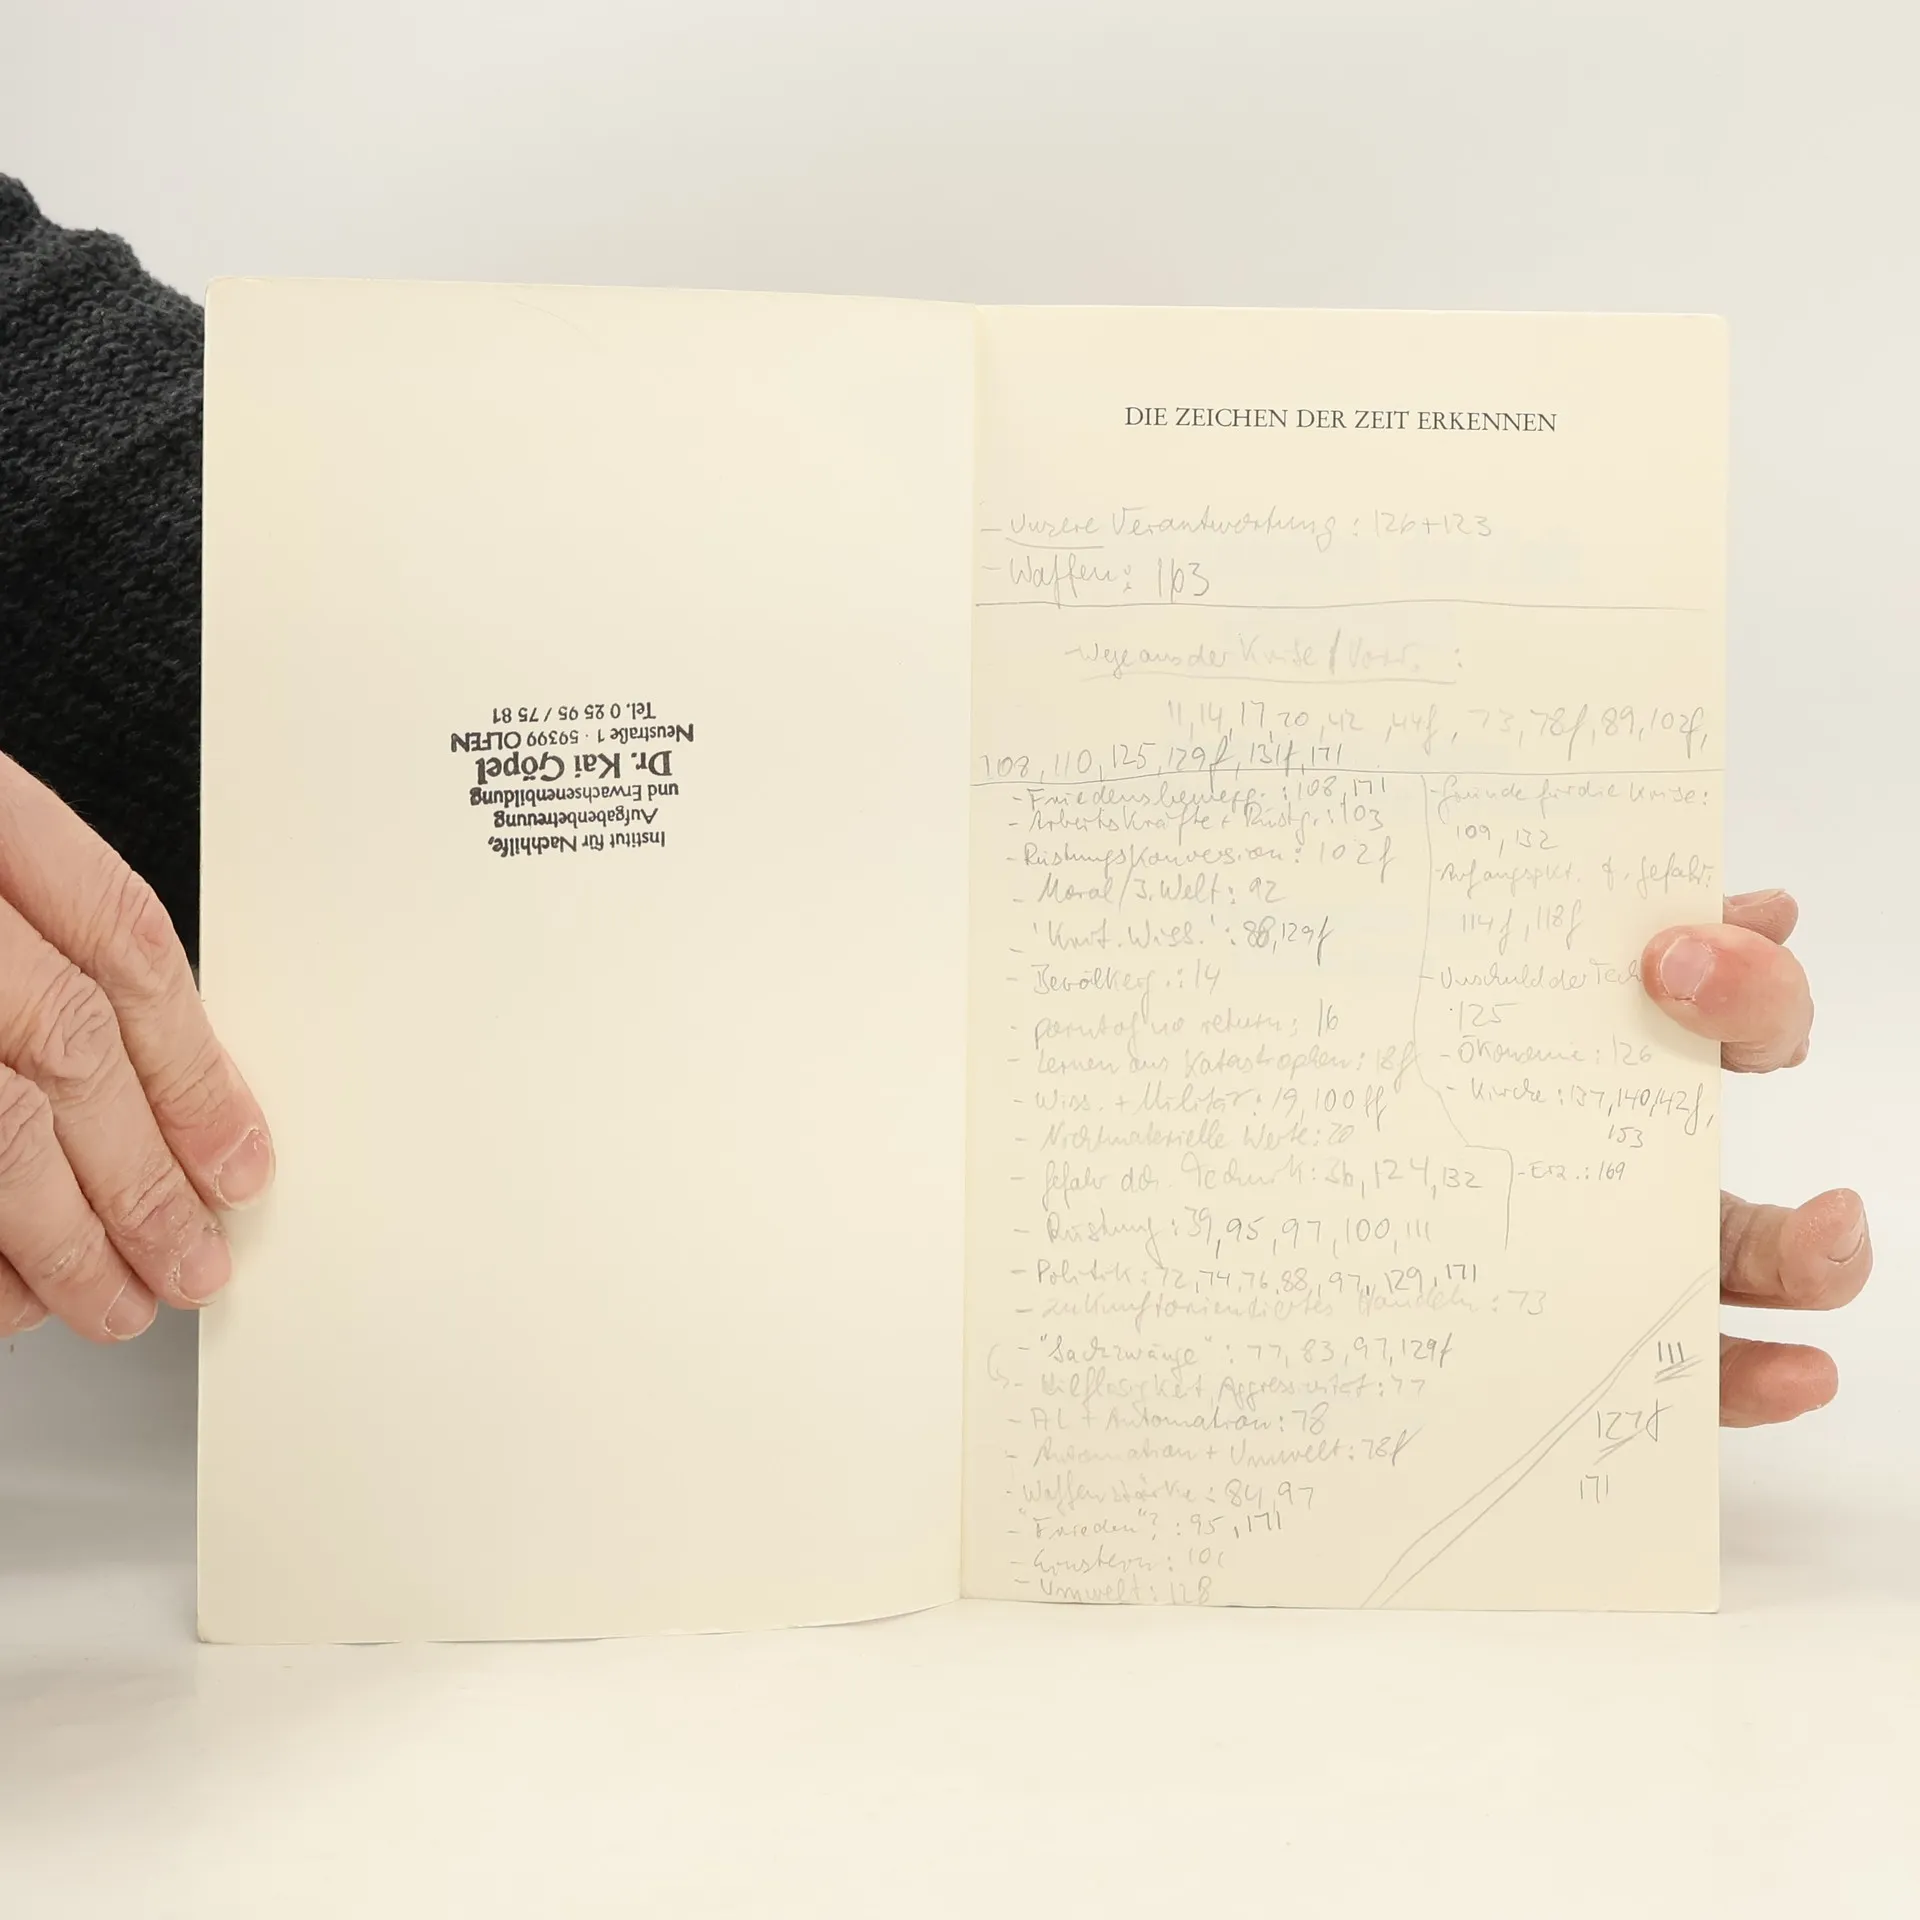 Institut für Nachhilfe,
Aufgabenbetreuung
und Erwachsenenbildung
Dr. Kai Göpel
Neustraße 1 · 59399 OLFEN
Tel. 0 25 95 / 75 81
DIE ZEICHEN DER ZEIT ERKENNEN
- Unsere Verantwortung : 126+123
- Waffen: 163
- Wege aus der Krise / :
11, 14, 17, 20, 42, 44f, 73, 78f, 89, 102f,
108, 110, 125, 129f, 131f, 171
- Friedensbeweg. : 108, 171
- Arbeitskräfte + Rüstg. : 103
- Rüstungskonversion : 102f
- Moral / 3. Welt : 92
- 'Krit. Wiss.' : 88, 129f
- Bevölkerg. : 14
- point of no return : 16
- Lernen aus Katastrophen : 18f
- Wiss. + Militär : 19, 100ff
- Nichtmaterielle Werte : 20
- Gefahr dch. Technik : 36, 124, 132
- Rüstung : 39, 95, 97, 100, 111
- Politik : 72, 74, 76, 88, 97, 129, 171
- zukunftorientiertes Handeln : 73
- "Sachzwänge" : 77, 83, 97, 129f
- Hilflosigkeit, Aggressivität : 77
- AL + Automation : 78
- Automation + Umwelt : 78f
- Waffenstärke : 84, 97
- "Frieden"? : 95, 171
- Einstein : 101
- Umwelt : 128
- Gründe für die Krise :
109, 132
- Anfangspkt. d. Gefahr :
114f, 118f
- Unschuld der Tech
125
- Ökonomie : 126
- Kirche : 137, 140, 142f,
153
- Erz. : 169
111
127f
171